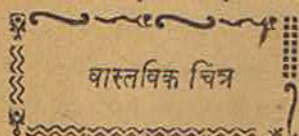 वास्तविक चित्र